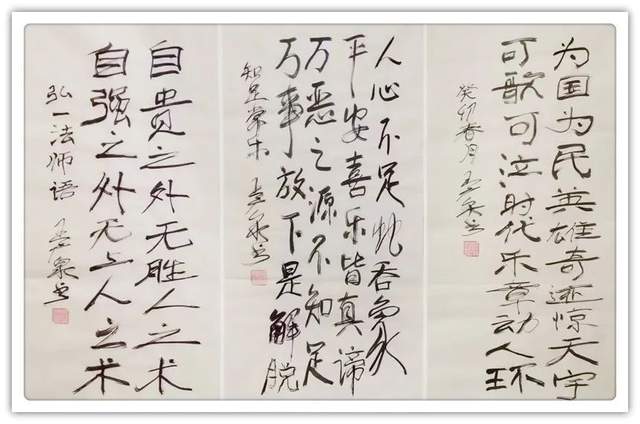 为国为民英雄奇迹惊天宇
可歌可泣时代乐章动人环
癸卯春月
人心不足蛇吞象
平安喜乐皆真谛
万恶之源不知足
万事放下是解脱
知足常乐
自贵之外无胜人之术
自强之外无上人之术
弘一法师语